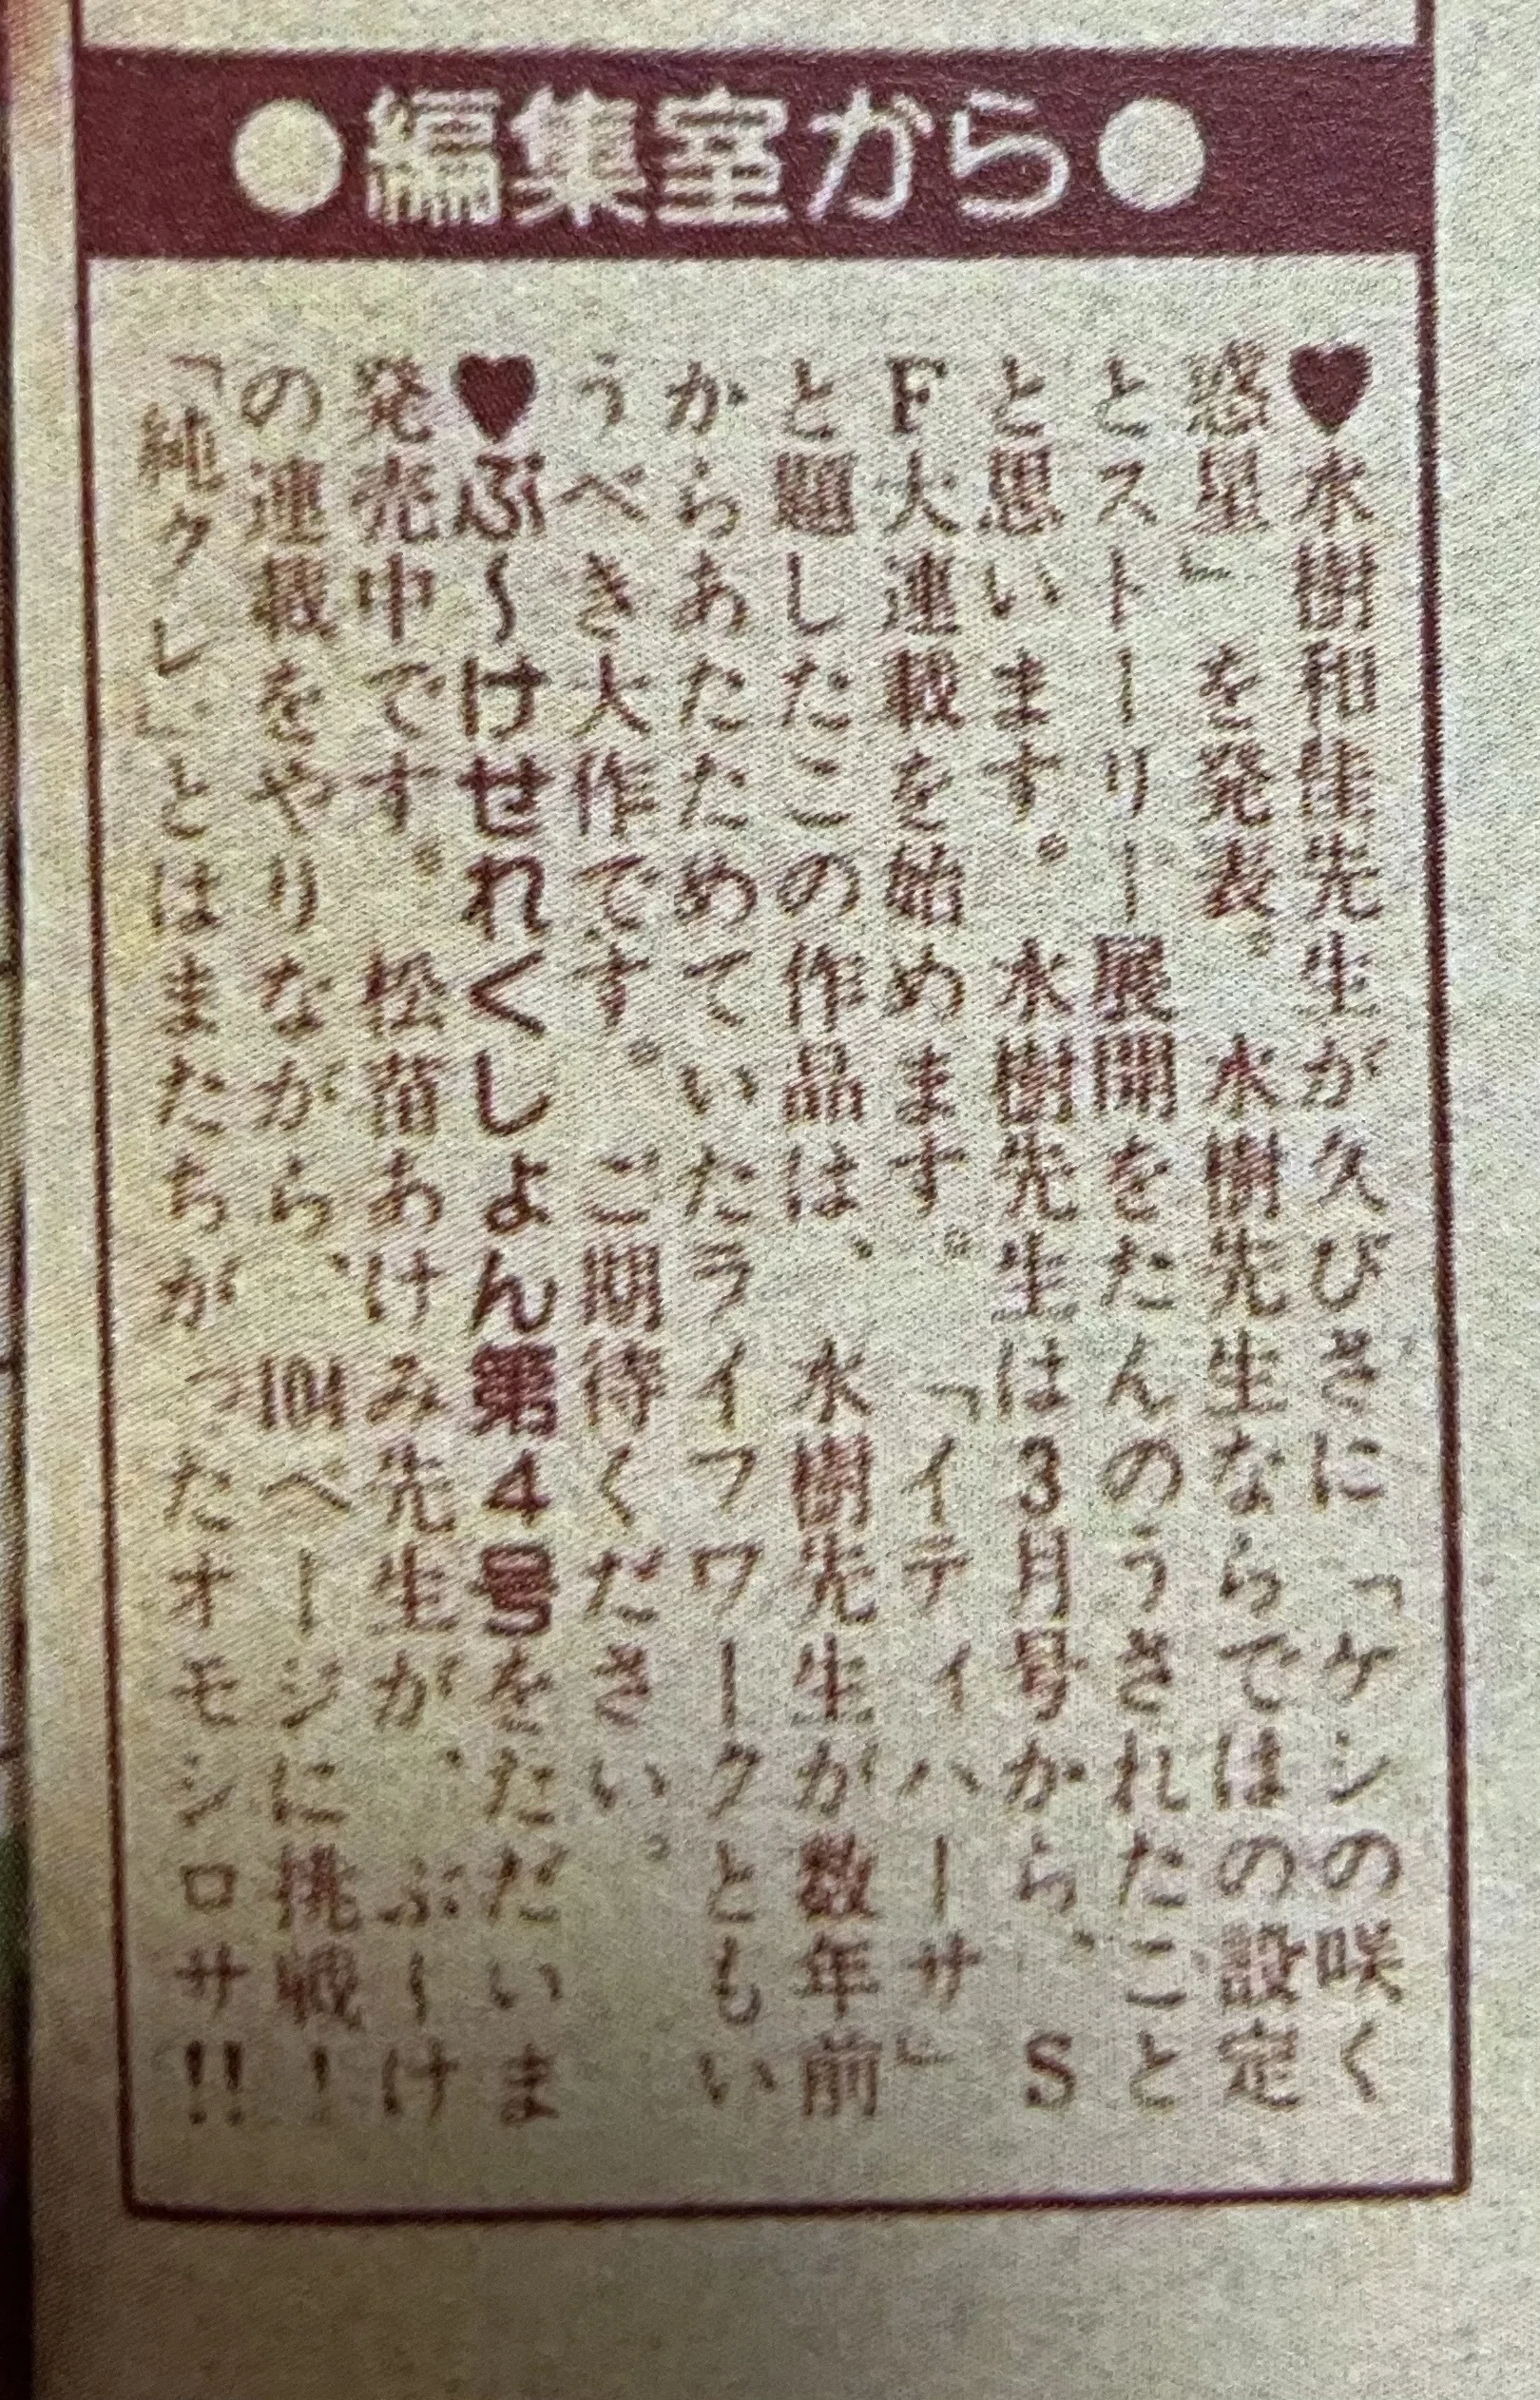 ●編集室から●
♥水樹和佳先生が久びさに「ケシの咲く
惑星」を発表。水樹先生ならではの設定
とストーリー展開をたんのうされたこと
と思います。水樹先生は3月号から、S
F大連載を始めます。「イティハーサ」
と題したこの作品は、水樹先生が数年前
からあたためていたライフワークともい
うべき大作です。ご期待ください。
♥ぶ〜けせれくしょん第4号をただいま
発売中です。松苗あけみ先生が、ぶ〜け
の連載をやりながら、104ページに挑戦!
「純クレ」とはまたちがったオモシロサ!!